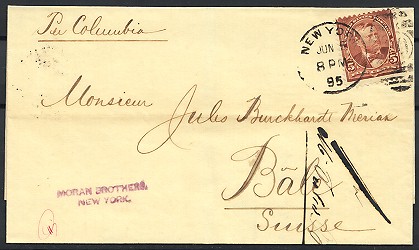 Per Columbia
NEW YORK
JUN
8 PM
95
Monsieur
Jules Burckhardt Merian
MORAN BROTHERS,
NEW YORK.
Bâle
Suisse